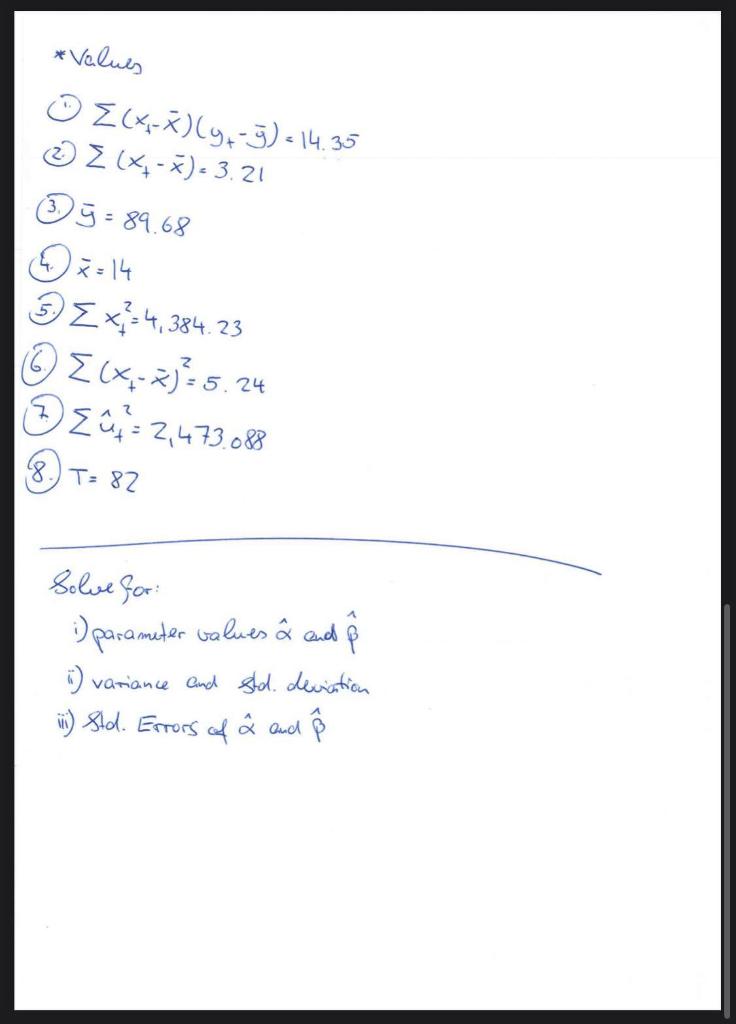 *Values
1. Σ(xₜ-x̄)(yₜ-ȳ)=14.35
2. Σ(xₜ-x̄)=3.21
3. ȳ=89.68
4. x̄=14
5. Σxₜ²=4,384.23
6. Σ(xₜ-x̄)²=5.24
7. Σûₜ²=2,473.088
8. T=82
Solve for:
i) parameter values α̂ and β̂
ii) variance and std. deviation
iii) Std. Errors of α̂ and β̂